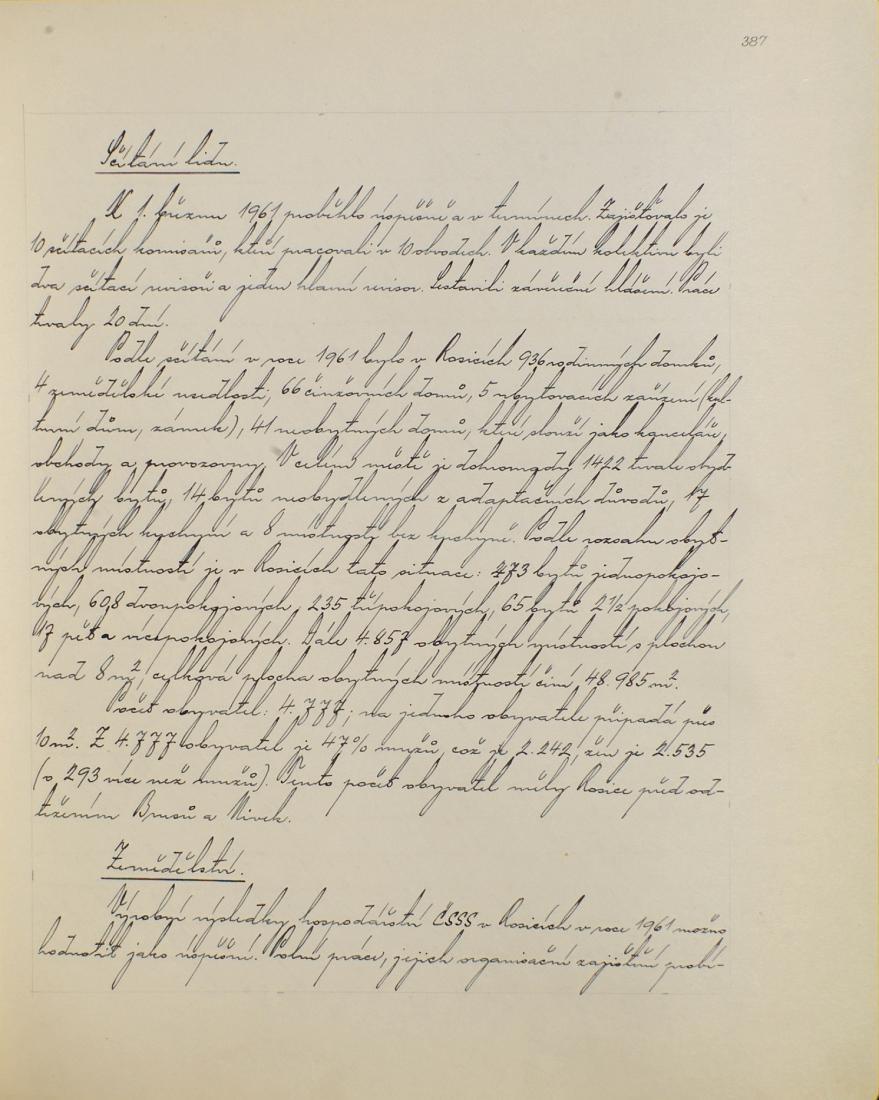 387
Sčítání lidu.
K 1. březnu 1961 proběhlo úspěšně a v termínech. Zajišťovalo je
10 sčítacích komisařů, kteří pracovali v 10 obvodech. V každém kolektivu byli
dva sčítací revisoři a jeden hlavní revisor. Sestavili závěrečné hlášení. Práce
trvaly 20 dní.
Podle sčítání v roce 1961 bylo v Rosicích 936 rodinných domků,
4 zemědělské usedlosti, 66 činžovních domů, 5 ubytovacích zařízení (kul-
turní dům, zámek), 41 neobytných domů, které slouží jako kanceláře,
obchody a provozovny. V celém městě je dohromady 1422 trvale obyd-
lených bytů, 14 bytů neobydlených z adaptačních důvodů, 17
obytných kuchyní a 8 místností bez kuchyně. Podle rozsahu obyt-
ných místností je v Rosicích tato situace: 473 bytů jednopokojo-
vých, 608 dvoupokojových, 235 třípokojových, 65 bytů 2½ pokojových,
17 pěta vícepokojových. Dále 4.857 obytných místností s plochou
nad 8 m², celková plocha obytných místností činí 48.985 m².
Počet obyvatel: 4.777; na jednoho obyvatele připadá přes
10 m². Z 4.777 obyvatel je 47% mužů, což je 2.242, žen je 2.535
(o 293 více než mužů). Tento počet obyvatel měly Rosice před od-
tržením Brusů a Nivek.
Zemědělství.
Výrobní výsledky hospodářství ČSSS v Rosicích v roce 1961 možno
hodnotit jako úspěšné. Polní práce, jejich organisační zajištění probí-